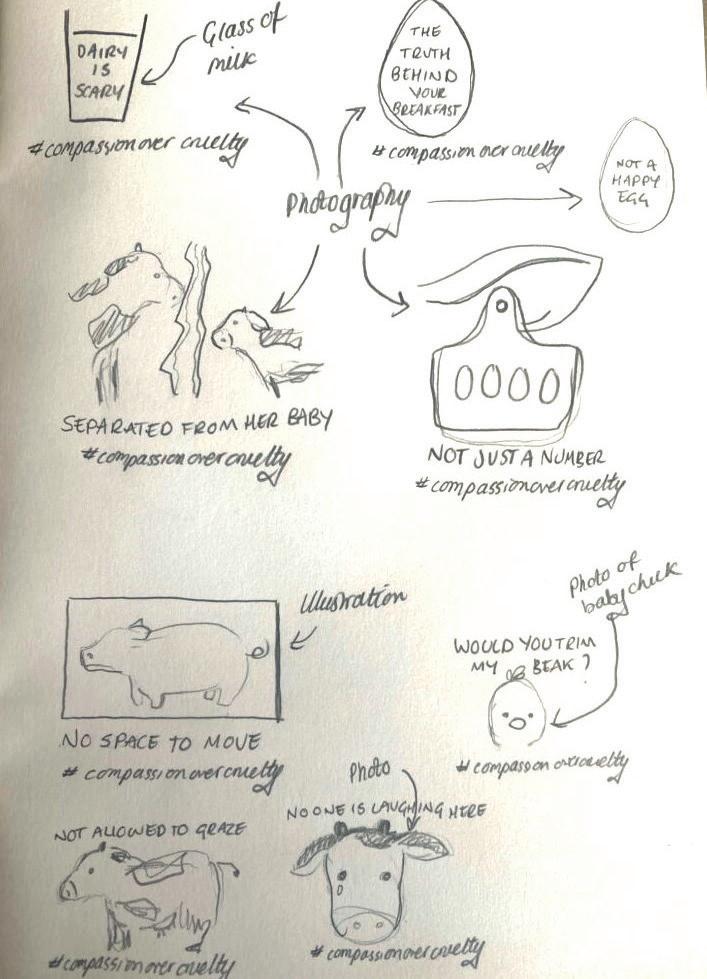 DAIRY
IS
SCARY
Glass of
milk
#compassion over cruelty
THE
TRUTH
BEHIND
YOUR
BREAKFAST
#compassion over cruelty
NOT A
HAPPY
EGG
Photography
SEPARATED FROM HER BABY
#compassion over cruelty
0000
NOT JUST A NUMBER
#compassion over cruelty
Illustration
NO SPACE TO MOVE
#compassion over cruelty
Photo of
baby chick
WOULD YOU TRIM
MY BEAK?
#compassion over cruelty
NOT ALLOWED TO GRAZE
#compassion over cruelty
Photo
NO ONE IS LAUGHING HERE
#compassion over cruelty